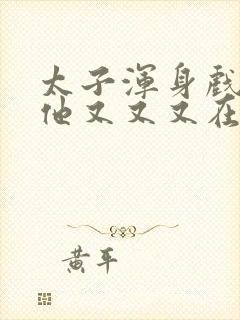 太子渾身戲
他又又又在
黄平